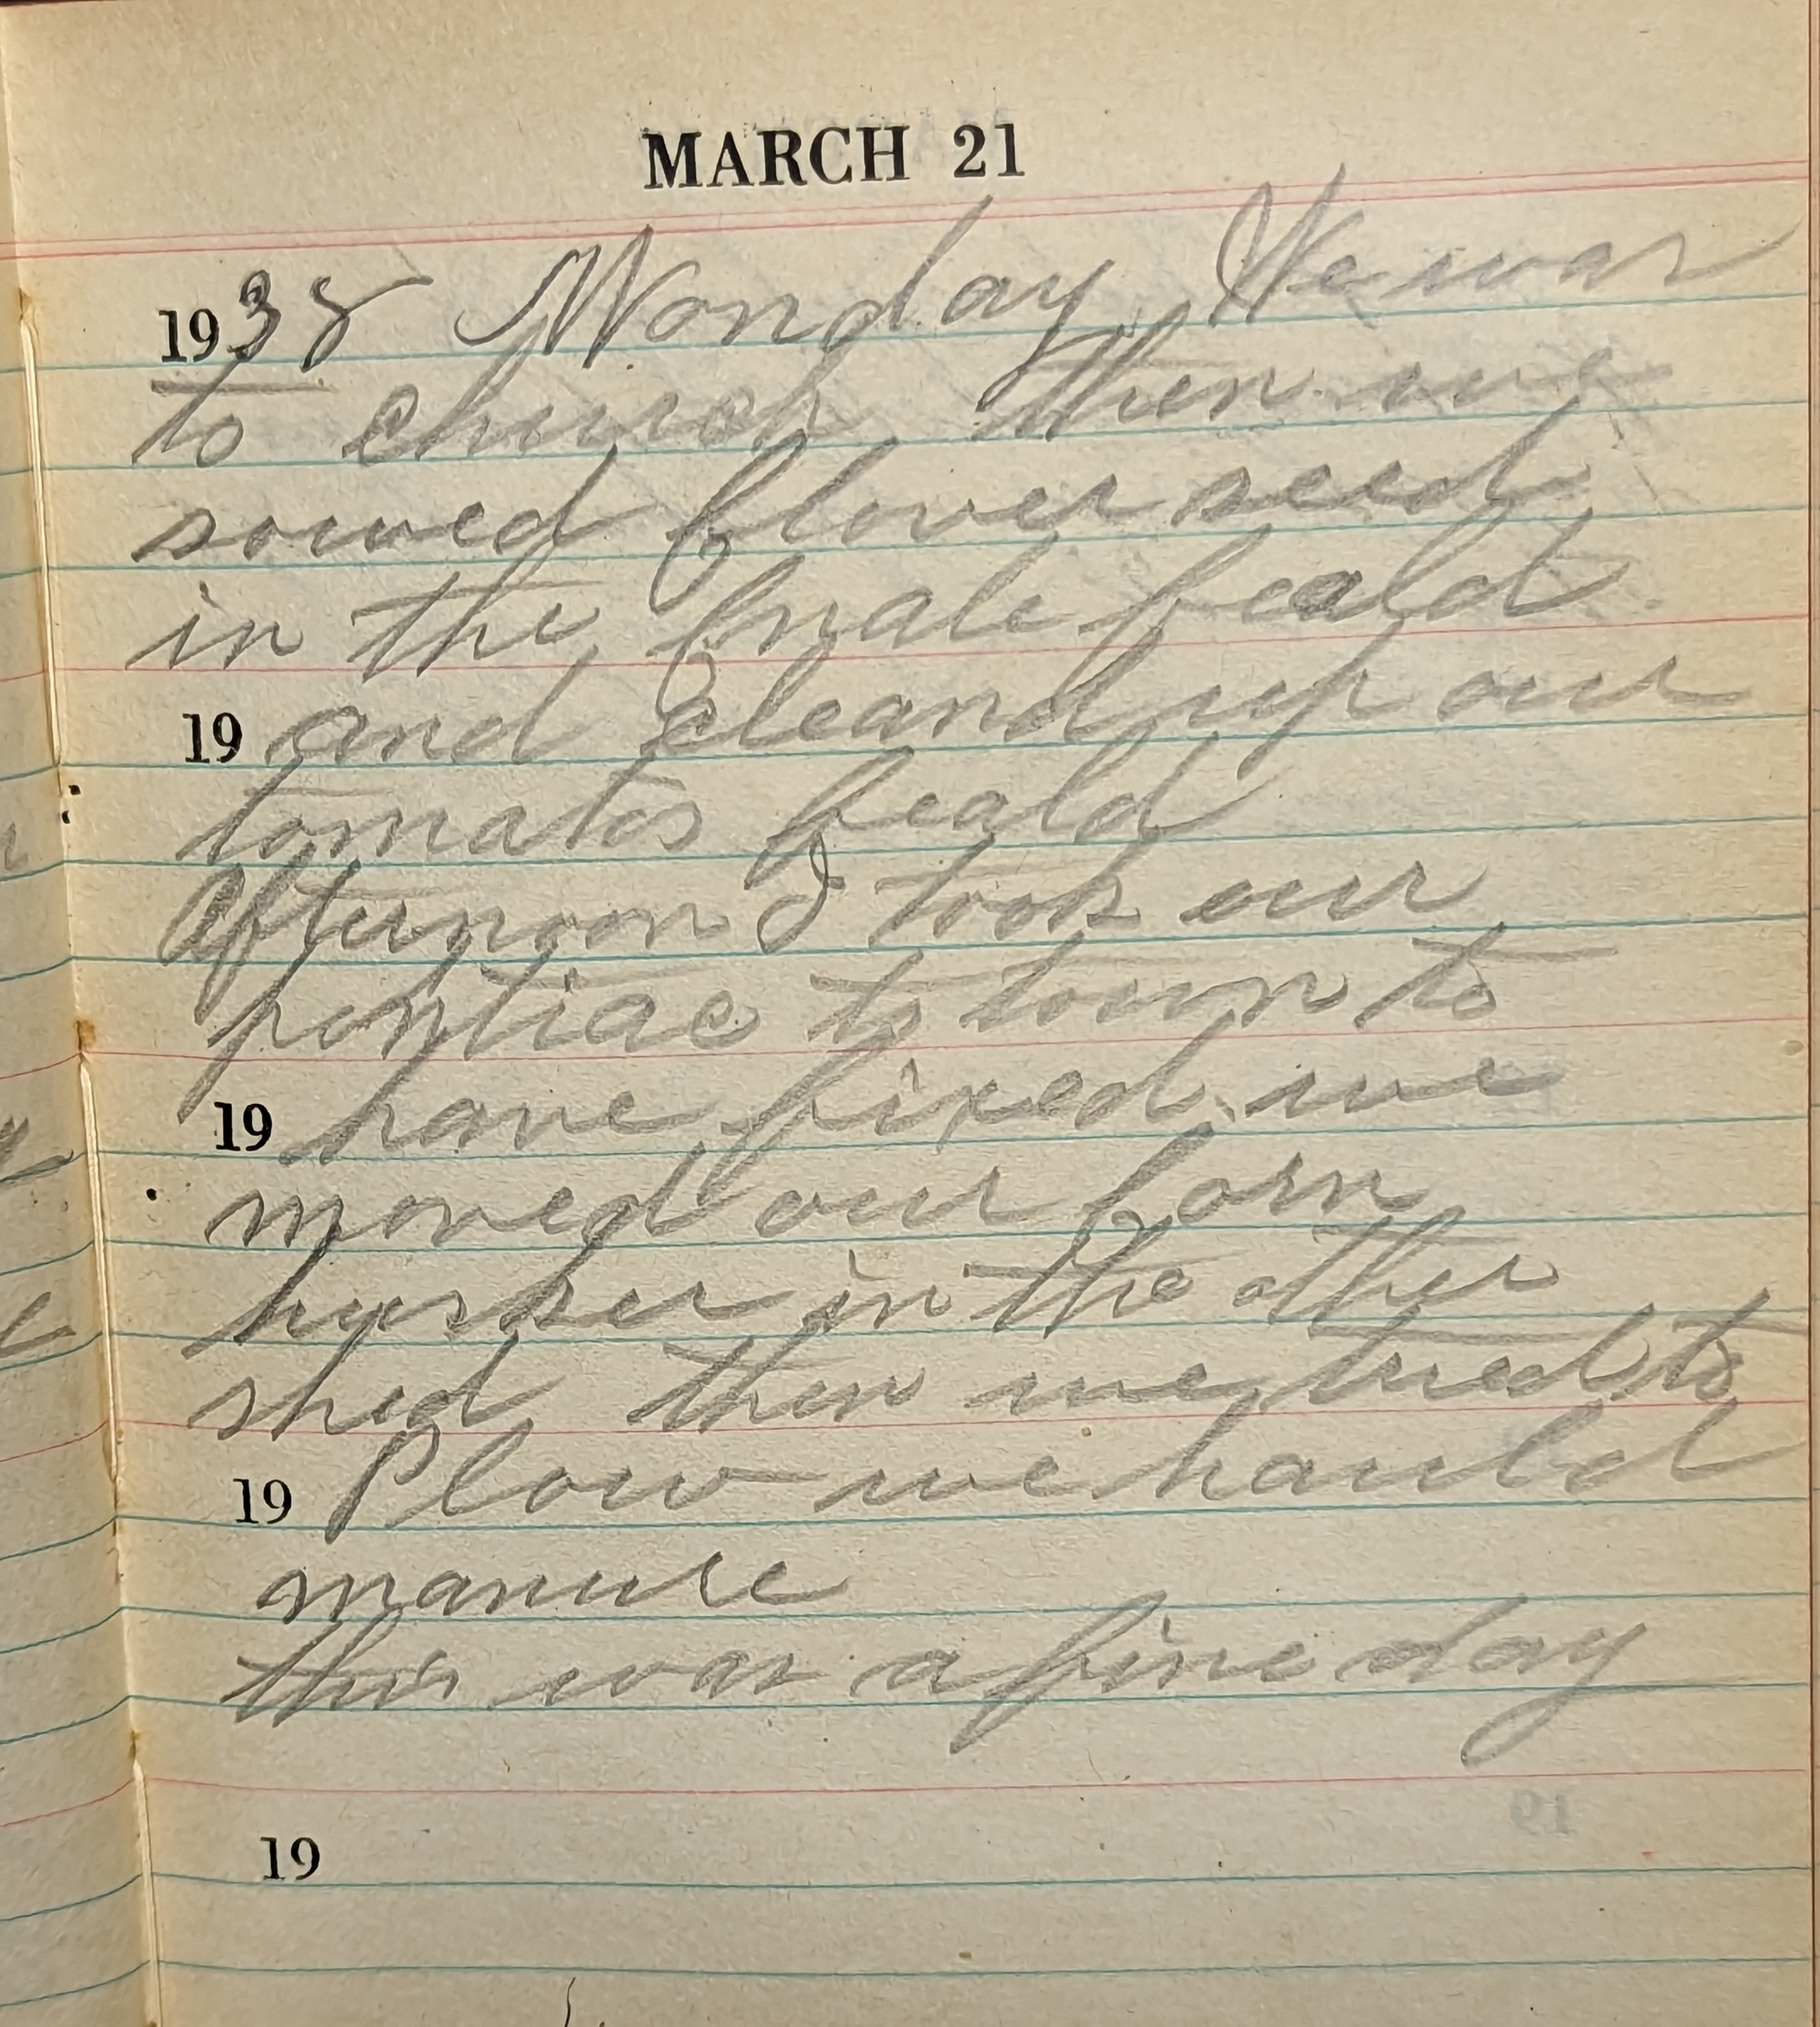 MARCH 21
1938 Monday We was
to church then we
sowed Clover seed
in the feald
19 and cleand up our
tomatos feald
Afternoon I took our
pontiac to town to
19 have fixed we
moved our Corn
husker in the other
shed then we tried to
19 Plow we hauld
manure
this was a fine day
19